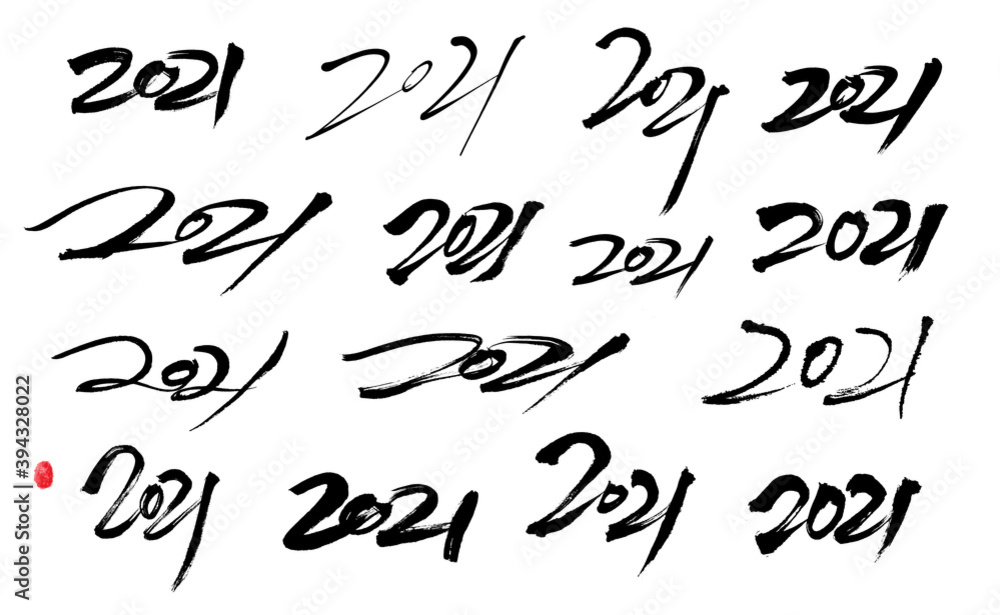 2021 2021 2021 2021
2021 2021 2021 2021
2021 2021 2021
2021 2021 2021 2021
Adobe Stock | #394328022